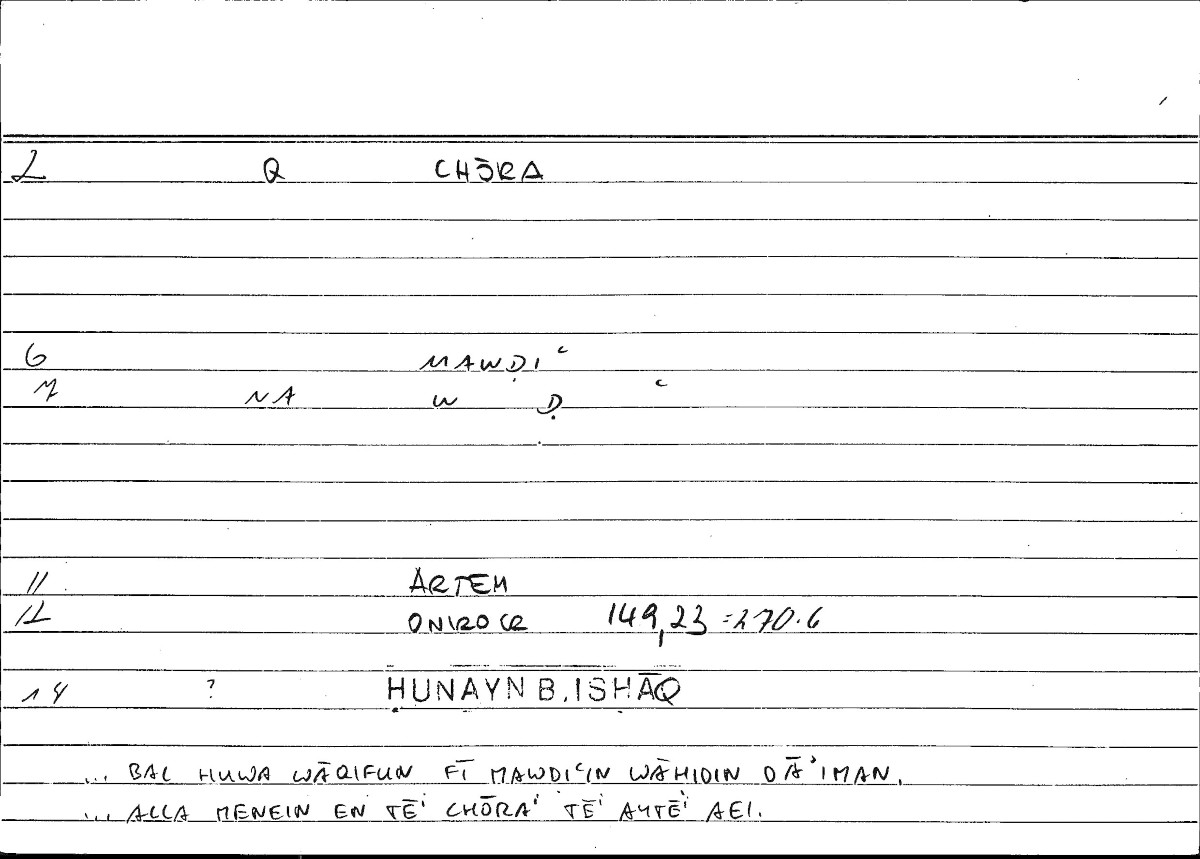 2 Q CHŌRA
6 MAWḌIʿ
7 NA W Ḍ ʿ
11 ARTEM
12 ONIROCR 149,23 = 270.6
14 ? ḤUNAYN B. ISḤĀQ
... BAL HUWA WĀQIFUN FĪ MAWDIʿIN WĀHIDIN DĀʾIMAN.
... ALLA MENEIN EN TĒⁱ CHŌRAⁱ TĒⁱ AYTĒⁱ AEI.